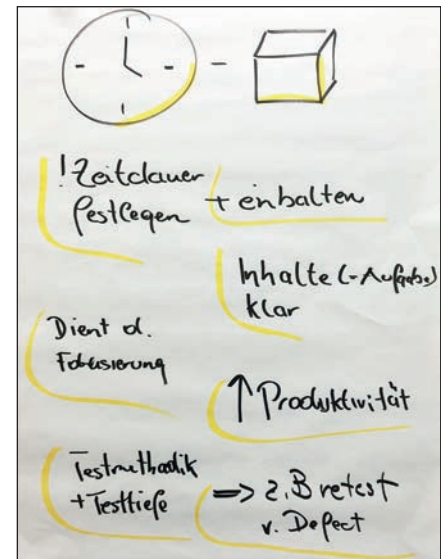 ! Zeitdauer
festlegen + einhalten
Inhalte (-Aufgabe)
klar
Dient d.
Fokusierung
↑ Produktivität
Testmethodik
+ Testtiefe
=> z.B retest
v. Defect